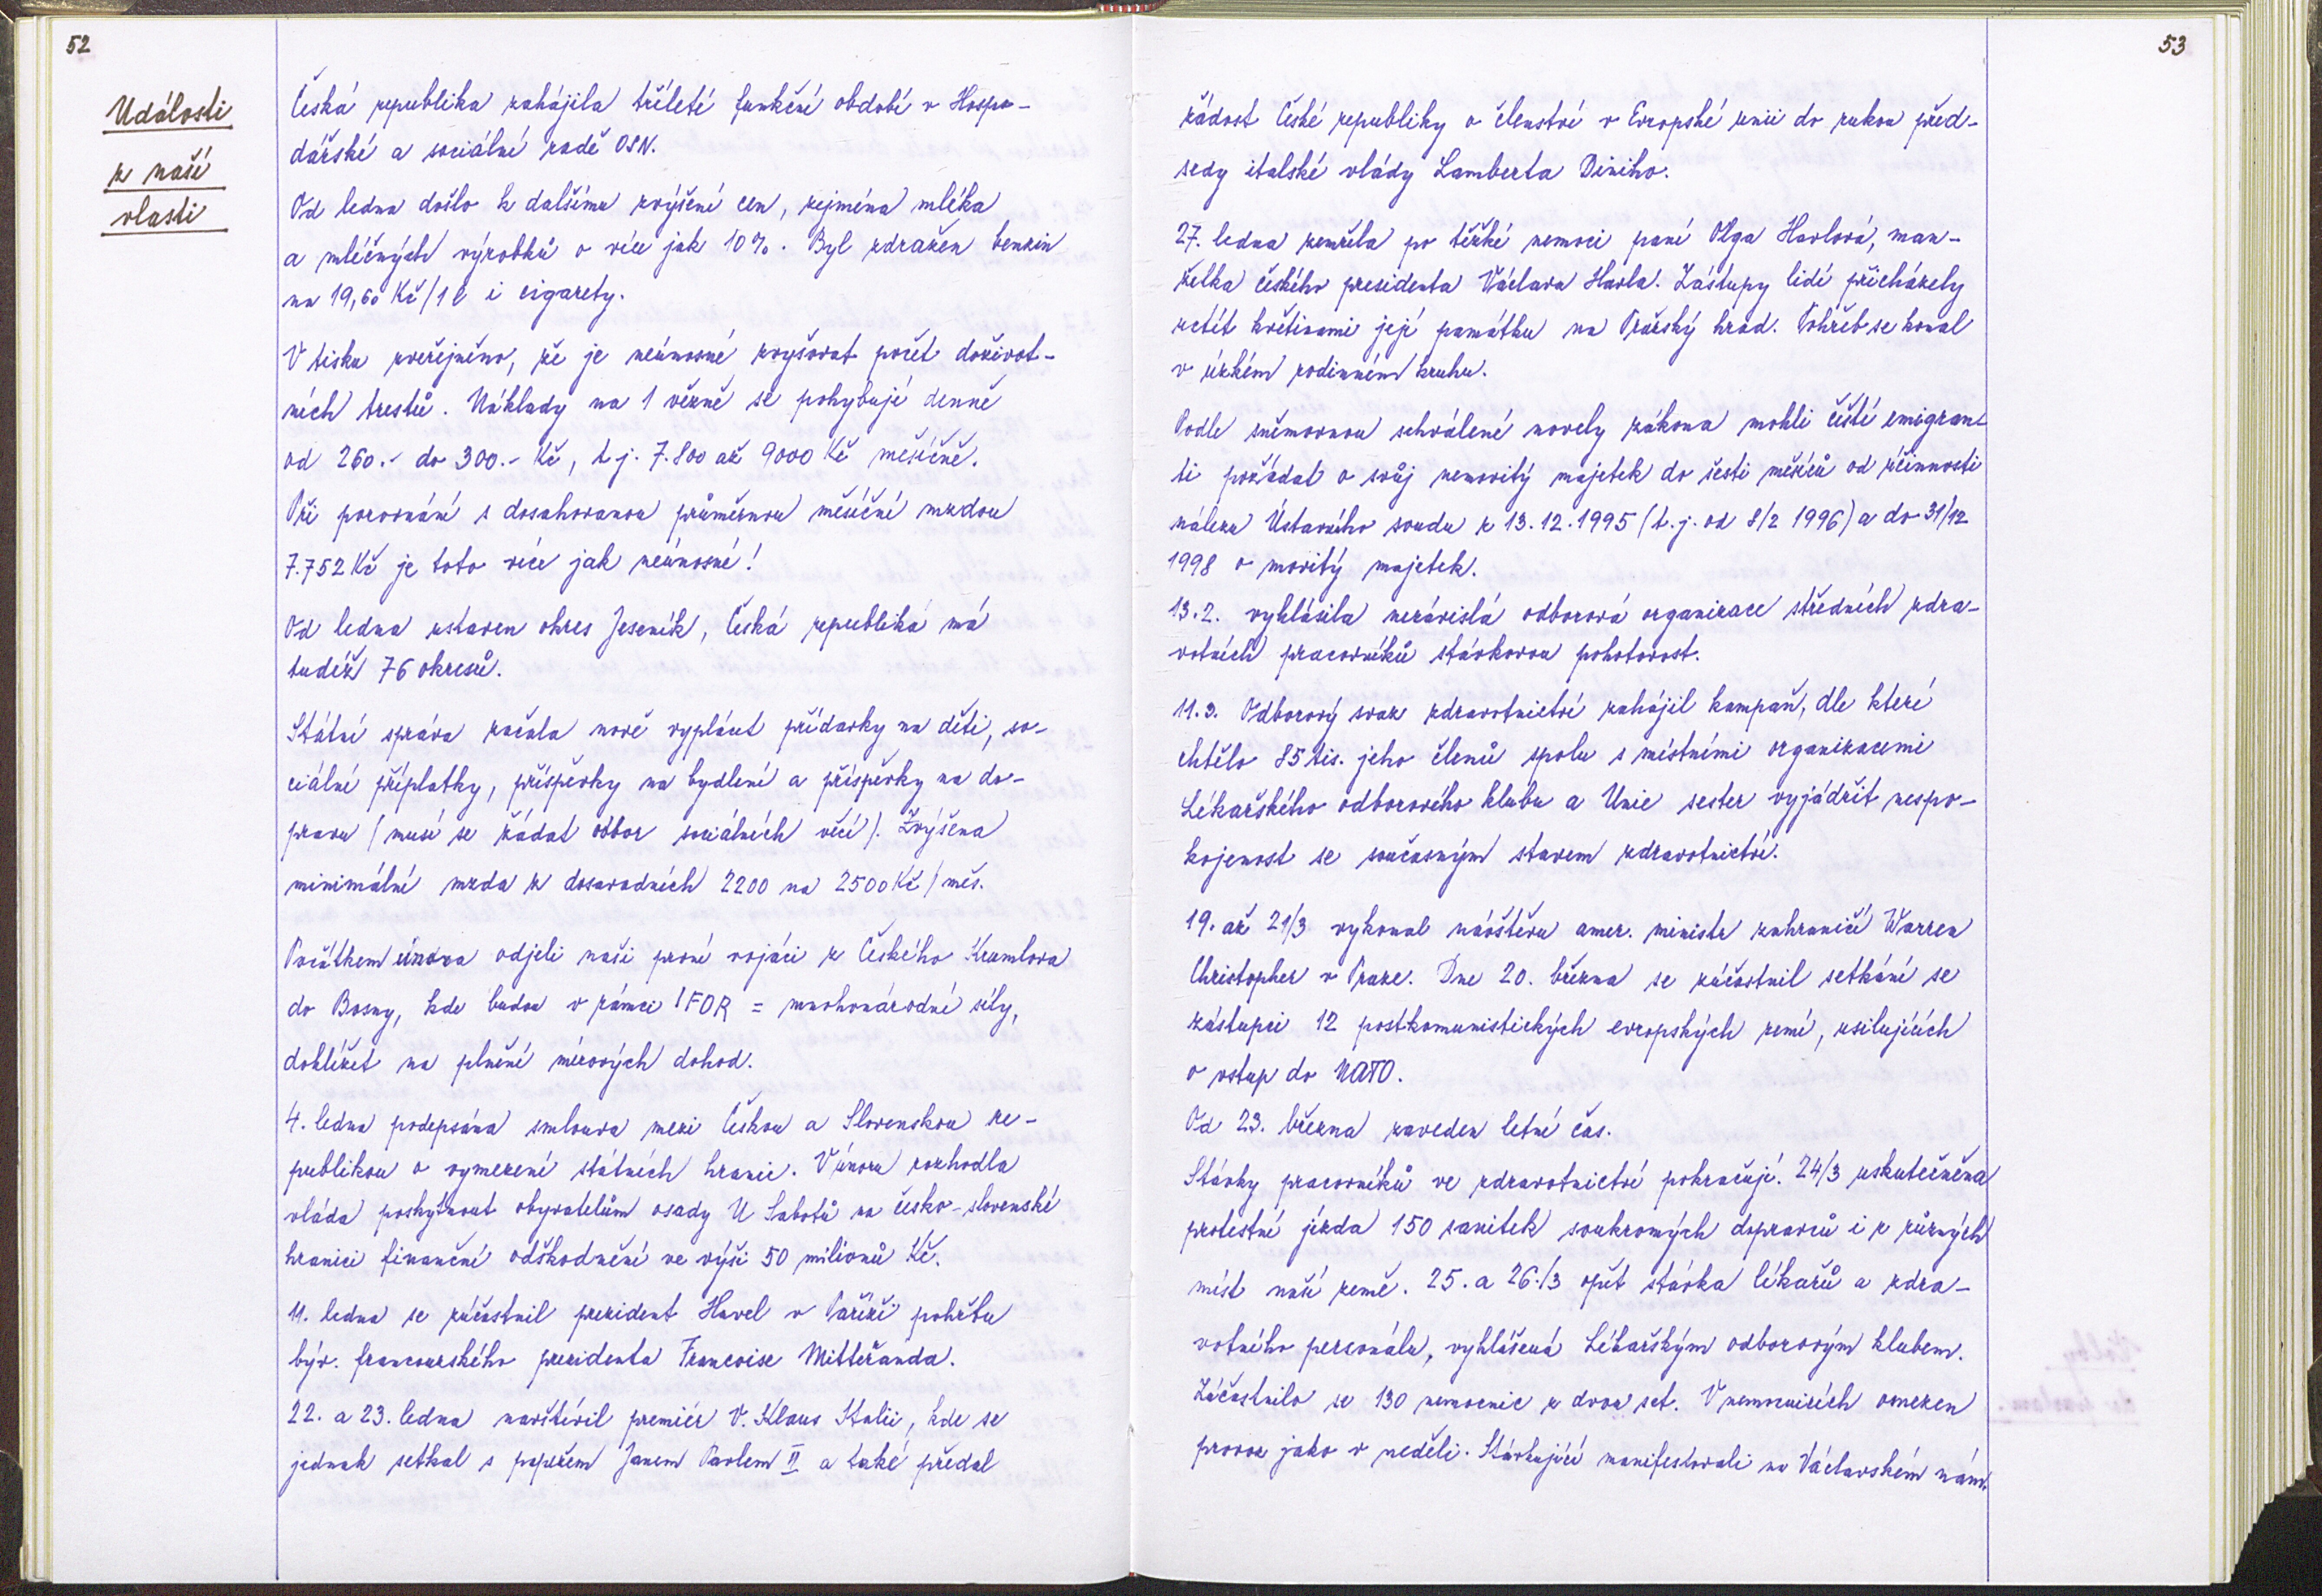 52
Události
z naší
vlasti
Česká republika zahájila tříleté funkční období v Hospo-
dářské a sociální radě OSN.
Od ledna došlo k dalšímu zvýšení cen, zejména mléka
a mléčných výrobků o více jak 10%. Byl zdražen benzin
na 19,60 Kč/1 l i cigarety.
V tisku zveřejněno, že je neúnosné zvyšovat počet doživot-
ních trestů. Náklady na 1 vězně se pohybují denně
od 260.- do 300.- Kč, t.j. 7.800 až 9000 Kč měsíčně.
Při porovnání s dosahovanou průměrnou měsíční mzdou
7.752 Kč je toto více jak neúnosné!
Od ledna ustaven okres Jeseník, Česká republika má
tudíž 76 okresů.
Státní správa začala nově vyplácet přídavky na děti, so-
ciální příplatky, příspěvky na bydlení a příspěvky na do-
pravu (musí se žádat odbor sociálních věcí). Zvýšena
minimální mzda z dosavadních 2200 na 2500 Kč/měs.
Počátkem února odjeli naši první vojáci z Českého Krumlova
do Bosny, kde budou v rámci IFOR = mnohonárodní síly,
dohlížet na plnění mírových dohod.
4. ledna podepsána smlouva mezi Českou a Slovenskou re-
publikou o vymezení státních hranic. V únoru rozhodla
vláda poskytnout obyvatelům osady U Sabotů na česko-slovenské
hranici finanční odškodnění ve výši 50 miliónů Kč.
11. ledna se zúčastnil prezident Havel v Paříži pohřbu
býv. francouzského prezidenta Francoise Mitteřanda.
22. a 23. ledna navštívil premiér V. Klaus Itálii, kde se
jednak setkal s papežem Janem Pavlem II a také předal
53
žádost České republiky o členství v Evropské unii do rukou před-
sedy italské vlády Lamberta Diniho.
27. ledna zemřela po těžké nemoci paní Olga Havlová, man-
želka českého presidenta Václava Havla. Zástupy lidí přicházely
uctít květinami její památku na Pražský hrad. Pohřeb se konal
v úzkém rodinném kruhu.
Podle sněmovnou schválené novely zákona mohli čeští emigran-
ti požádat o svůj nemovitý majetek do šesti měsíců od účinnosti
nálezu Ústavního soudu z 13.12.1995 (t.j. od 8/2 1996) a do 31/12
1998 o movitý majetek.
13.2. vyhlásila nezávislá odborová organizace středních zdra-
votních pracovníků stávkovou pohotovost.
11.3. Odborový svaz zdravotnictví zahájil kampaň, dle které
chtělo 85 tis. jeho členů spolu s místními organizacemi
Lékařského odborového klubu a Unie sester vyjádřit nespo-
kojenost se současným stavem zdravotnictví.
19. až 21/3 vykonal návštěvu amer. ministr zahraničí Warren
Christopher v Praze. Dne 20. března se zúčastnil setkání se
zástupci 12 postkomunistických evropských zemí, usilujících
o vstup do NATO.
Od 23. března zaveden letní čas.
Stávky pracovníků ve zdravotnictví pokračují. 24/3 uskutečněna
protestní jízda 150 sanitek soukromých dopravců i z různých
míst naší země. 25. a 26./3 opět stávka lékařů a zdra-
votního personálu, vyhlášená Lékařským odborovým klubem.
Zúčastnilo se 130 nemocnic z dvou set. V nemocnicích omezen
provoz jako v neděli. Stávkující manifestovali na Václavském nám.